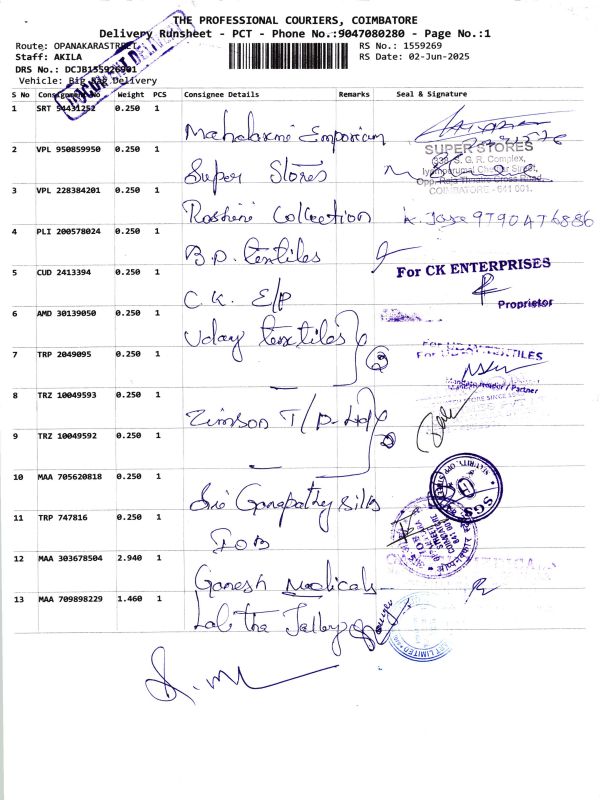 THE PROFESSIONAL COURIERS, COIMBATORE
Delivery Runsheet - PCT - Phone No.:9047080280 - Page No.:1
Route: OPANAKARASTREET
RS No.: 1559269
Staff: AKILA
RS Date: 02-Jun-2025
DRS No.: DCJB155926901
Vehicle: Big Bag Delivery
S No Consignment No Weight PCS Consignee Details Remarks Seal & Signature
1 SRT 54431252 0.250 1
Mahalaxmi Emporium
2 VPL 950859950 0.250 1
Super Stores
SUPER STORES
S. G. R. Complex,
COIMBATORE - 641 001.
3 VPL 228384201 0.250 1
Roshini Collection K. Jose 9790476886
4 PLI 200578024 0.250 1
B.P. textiles
5 CUD 2413394 0.250 1
For CK ENTERPRISES
Proprietor
C.K. E/P
6 AMD 30139050 0.250 1
Uday textiles
7 TRP 2049095 0.250 1
2
8 TRZ 10049593 0.250 1
Zimson T/P-Ltd
9 TRZ 10049592 0.250 1
2
10 MAA 705620818 0.250 1
Sri Ganapathy Silks
SGS
11 TRP 747816 0.250 1
IOB
12 MAA 303678504 2.940 1
Ganesh Medicals
13 MAA 709898229 1.460 1